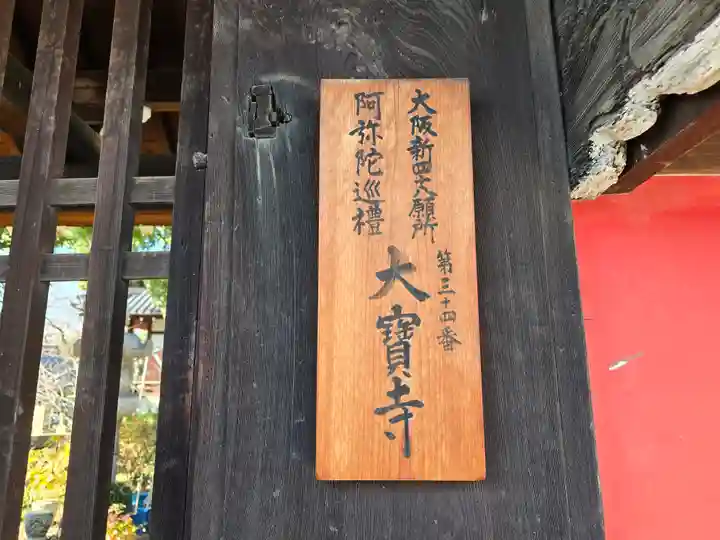 大阪新四十八願所
阿弥陀巡禮
第三十四番
大寳寺